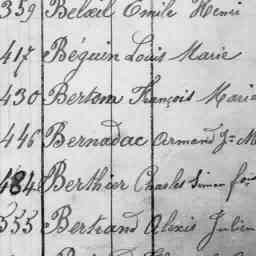 359 Belœil Emile Henri
417 Béguin Louis Marie
430 Bertom François Maria
446 Bernadac Armand Jn M
484 Berthier Charles Simon fois
555 Bertrand Alexis Julien